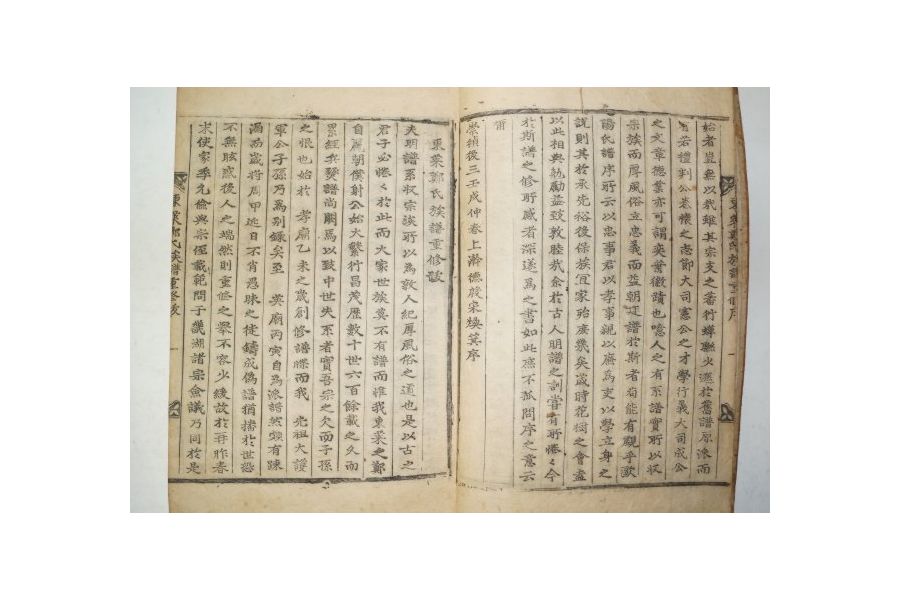 始者豈無以哉雖其宗支之蕃衍蟬聯火遜於舊譜原派而
有若禮判公恭懷之志節大司憲公之才學行義大司成公
之文章德業亦可謂奕舊徽蹟也噫人之有系譜實所以收
宗族而厚風俗立忠義而益朝廷譜於斯者苟能有觀乎歐
陽氏譜序所云以忠事君以孝事親以廉為吏以學立身之
說則其於承先裕後保族宜家殆庶幾矣歲時花樹之會盍
以此相與勉勵益致敦睦哉余於古人明譜之訓嘗有所惓々今
於斯譜之修所感者深遂為之書如此應不孤問序之意云
爾
崇禎後三壬戌仲春上澣德殷宋煥箕序
東萊鄭氏族譜重修跋
夫明譜系收宗族所以為敦人紀厚風俗之道也是以古之
君子必惓々於此而大家世族莫不有譜而惟我東萊之鄭
自麗朝僕射公始大繁衍昌茂歷數十世六百餘載之久而
累經兵燹譜尚闕焉以致中世失系者實吾宗之欠而子孫
之恨也始於 孝廟乙未之歲創修譜牒而我 先祖大護
軍公子孫乃為別錄矣至 英廟丙寅自為派譜然猶有踈
漏而歲將周甲迩日不肖愚昧之徒鑄成偽譜猶撦於世恐
不無眩惑後人之端然則重修之舉不容少緩故於再昨春
木使家季允儉與宗侄載範問于畿湖諸宗僉議乃同於是
東萊鄭氏族譜重修跋 一